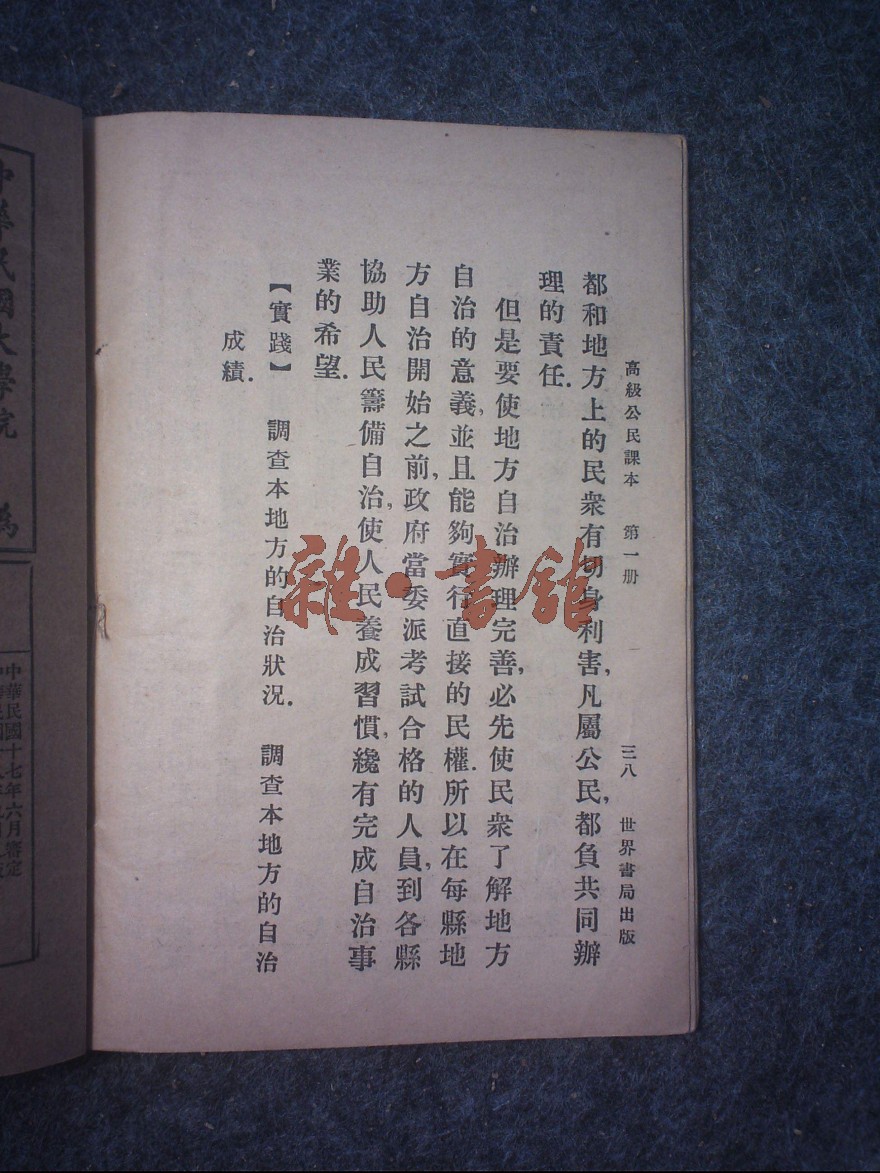 高級公民課本　第一册　三八　世界書局出版
都和地方上的民衆有切身利害,凡屬公民,都負共同辦
理的責任.
但是要使地方自治辦理完善,必先使民衆了解地方
自治的意義,並且能夠實行直接的民權.所以在每縣地
方自治開始之前,政府當委派考試合格的人員,到各縣
協助人民籌備自治,使人民養成習慣,纔有完成自治事
業的希望.
【實踐】　調查本地方的自治狀況.　調查本地方的自治
成績.
雜·書館
中華民國大學院
爲
中華民國十七年六月審定